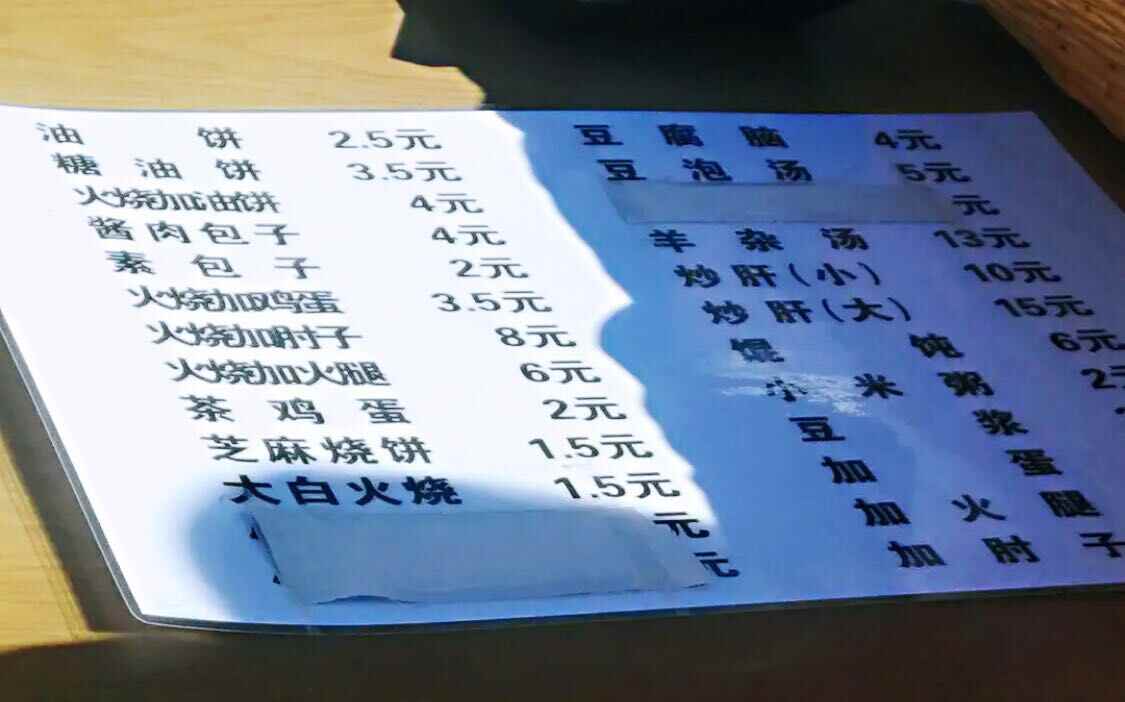 油饼 2.5元
糖油饼 3.5元
火烧加油饼 4元
酱肉包子 4元
素包子 2元
火烧加鸡蛋 3.5元
火烧加肘子 8元
火烧加火腿 6元
茶鸡蛋 2元
芝麻烧饼 1.5元
大白火烧 1.5元
元
元
豆腐脑 4元
豆泡汤 5元
元
羊杂汤 13元
炒肝(小) 10元
炒肝(大) 15元
馄饨 6元
小米粥 2元
豆浆
加蛋
加火腿
加肘子